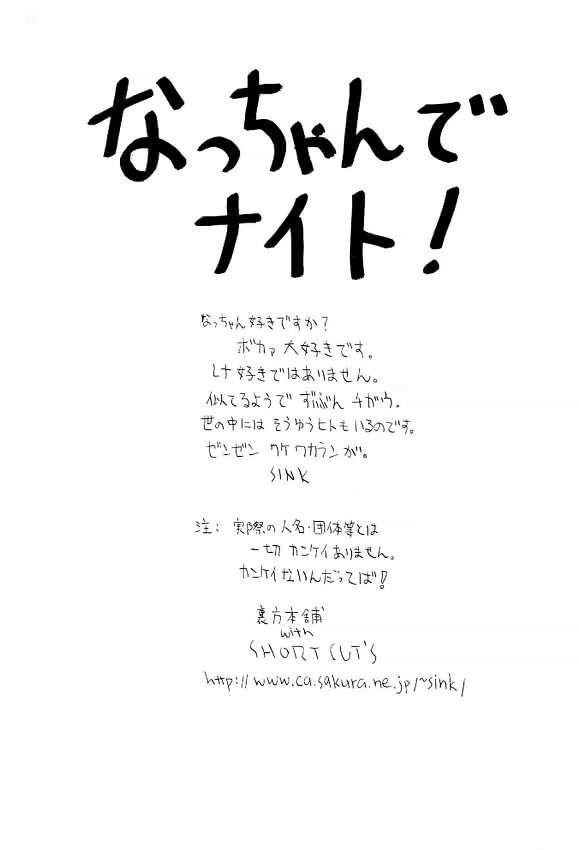 なっちゃんで
ナイト!
なっちゃん好きですか?
ボカァ 大好きです。
レナ好きではありません。
似てるようで ずいぶん チガウ.
世の中には そうゆうヒトも いるのです。
ゼンゼン ワケワカランが。
SINK
注: 実際の人名・団体等とは
一切 カンケイありません。
カンケイないんだってば!
裏方本舗
with
SHORT CUT'S
http://www.ca.sakura.ne.jp/~sink/